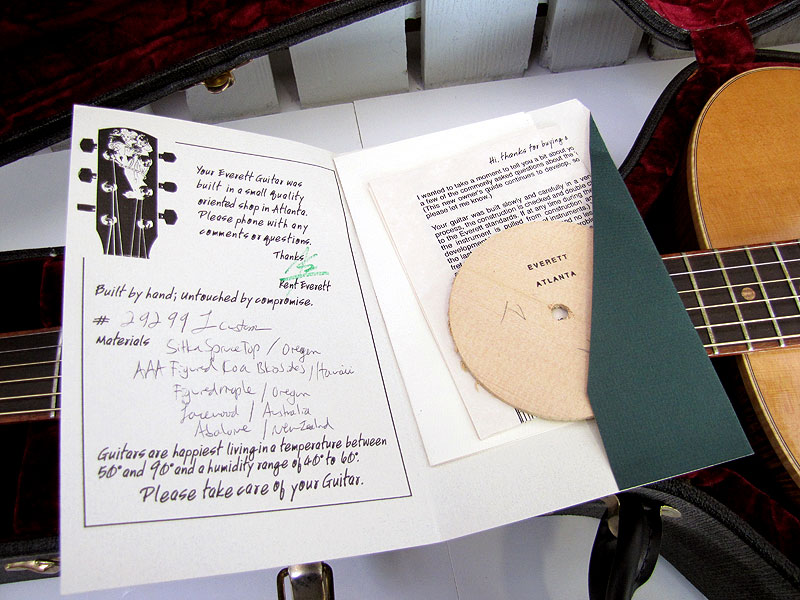 Your Everett Guitar was
built in a small quality
oriented shop in Atlanta.
Please phone with any
comments or questions.
Thanks
Kent Everett
Built by hand; untouched by compromise.
# 29299 1 Custom
Materials Sitka Spruce Top / Oregon
AAA Figured Koa Bk+sides / Hawaii
Figured maple / Oregon
Lacewood / Australia
Abalone / New Zealand
Guitars are happiest living in a temperature between
50° and 90° and a humidity range of 40° to 60°.
Please take care of your Guitar.
Hi, thanks for buying
I wanted to take a moment to tell you a bit about
a few of the commonly asked questions about the
(This new owner's guide continues to develop, so
please let me know.)
Your guitar was built slowly and carefully in a
process, the construction is checked and double
to the Everett standards. If at any time during the
the instrument is pulled from construction
EVERETT
ATLANTA